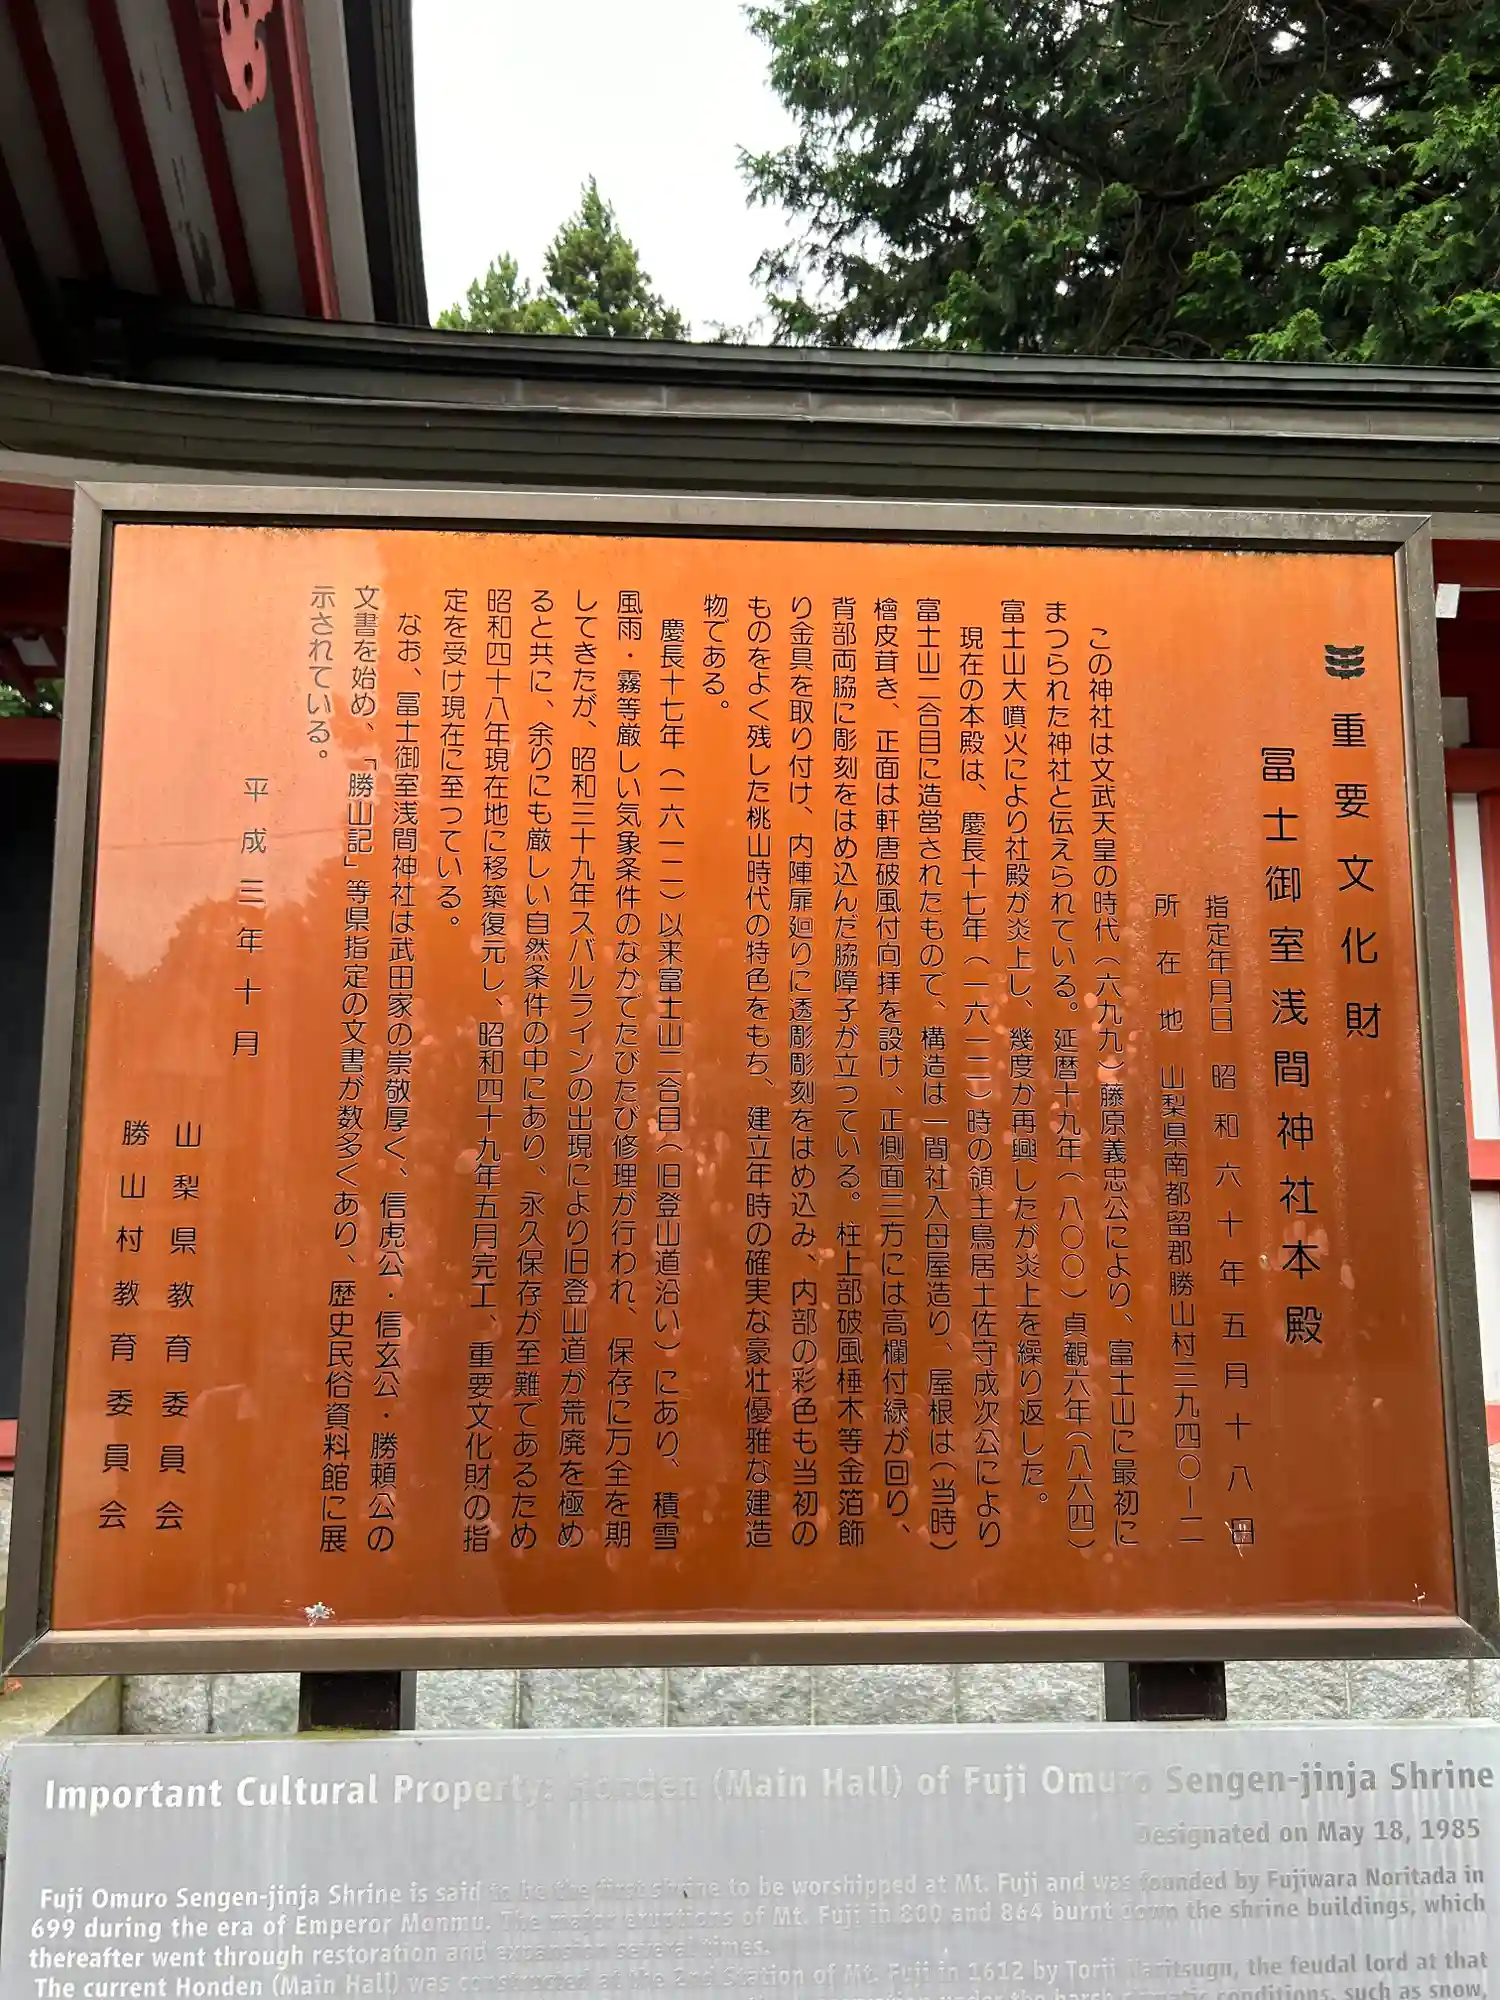 重要文化財
冨士御室浅間神社本殿
指定年月日 昭和六十年五月十八日
所在地 山梨県南都留郡勝山村三九四〇ー二
この神社は文武天皇の時代（六九九）藤原義忠公により、富士山に最初に
まつられた神社と伝えられている。延暦十九年（八〇〇）貞観六年（八六四）
富士山大噴火により社殿が炎上し、幾度か再興したが炎上を繰り返した。
現在の本殿は、慶長十七年（一六一二）時の領主鳥居土佐守成次公により
富士山二合目に造営されたもので、構造は一間社入母屋造り、屋根は（当時）
檜皮茸き、正面は軒唐破風付向拝を設け、正側面三方には高欄付縁が回り、
背部両脇に彫刻をはめ込んだ脇障子が立つている。柱上部破風棰木等金箔飾
り金具を取り付け、内陣扉廻りに透彫彫刻をはめ込み、内部の彩色も当初の
ものをよく残した桃山時代の特色をもち、建立年時の確実な豪壮優雅な建造
物である。
慶長十七年（一六一二）以来富士山二合目（旧登山道沿い）にあり、積雪
風雨・霧等厳しい気象条件のなかでたびたび修理が行われ、保存に万全を期
してきたが、昭和三十九年スバルラインの出現により旧登山道が荒廃を極め
ると共に、余りにも厳しい自然条件の中にあり、永久保存が至難であるため
昭和四十八年現在地に移築復元し、昭和四十九年五月完工、重要文化財の指
定を受け現在に至つている。
なお、冨士御室浅間神社は武田家の崇敬厚く、信虎公・信玄公・勝頼公の
文書を始め、「勝山記」等県指定の文書が数多くあり、歴史民俗資料館に展
示されている。
平成三年十月
山梨県教育委員会
勝山村教育委員会
Important Cultural Property: Honden (Main Hall) of Fuji Omuro Sengen-jinja Shrine
Designated on May 18, 1985
Fuji Omuro Sengen-jinja Shrine is said to be the first shrine to be worshipped at Mt. Fuji and was founded by Fujiwara Noritada in
699 during the era of Emperor Monmu. The major eruptions of Mt. Fuji in 800 and 864 burnt down the shrine buildings, which
thereafter went through restoration and expansion several times.
The current Honden (Main Hall) was constructed at the 2nd Station of Mt. Fuji in 1612 by Torii Naritsugu, the feudal lord at that
under the harsh climatic conditions, such as snow,